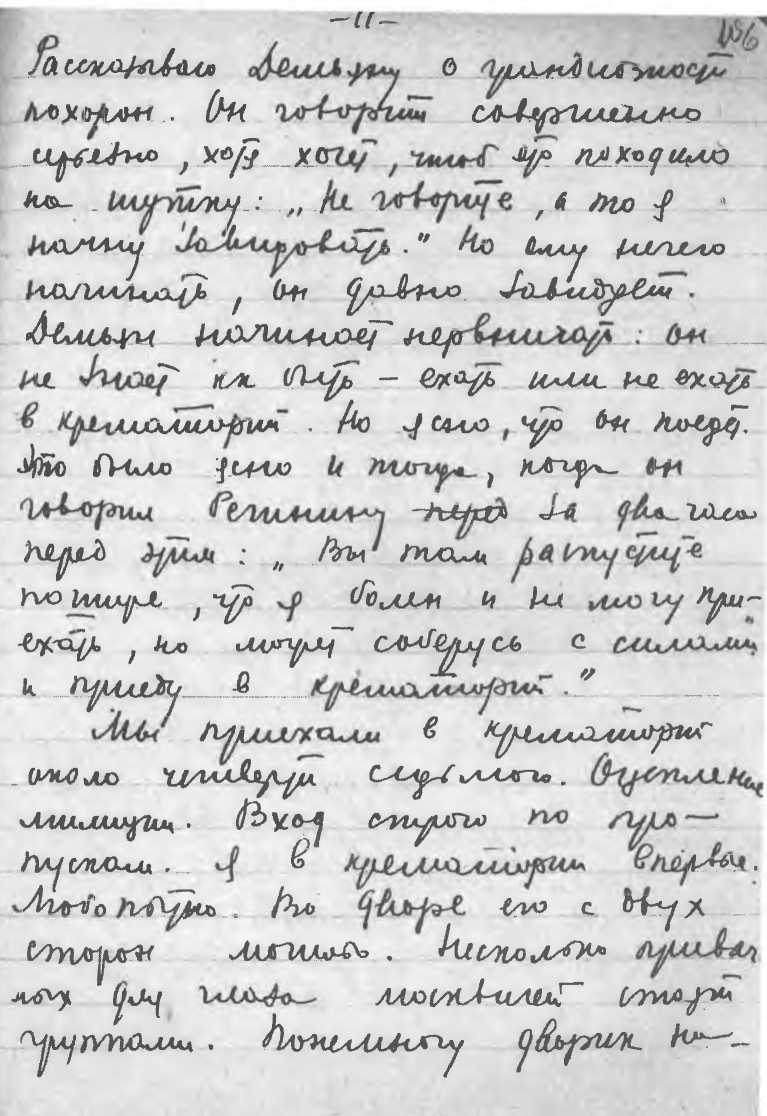 -11-
106
Рассказываю Демьяну о грандиозности
похорон. Он говорит совершенно
серьезно, хотя хочет, чтоб это походило
на шутку: „Не говорите, а то я
начну завидовать.” Но ему нечего
начинать, он давно завидует.
Демьян начинает нервничать: он
не знает как быть – ехать или не ехать
в крематорий. Но ясно, что он поедет.
Это было ясно и тогда, когда он
говорил Регинину перед за два часа
перед этим: „Вы там распустите
пошире, что я болен и не могу при-
ехать, но может соберусь с силами
и приеду в крематорий.”
Мы приехали в крематорий
около четверти седьмого. Оцепление
милиции. Вход строго по про-
пускам. Я в крематории впервые.
Любопытно. Во дворе его с двух
сторон могилы. Несколько привыч
ных для глаза москвичей стоят
группами. Понемногу дворик на-